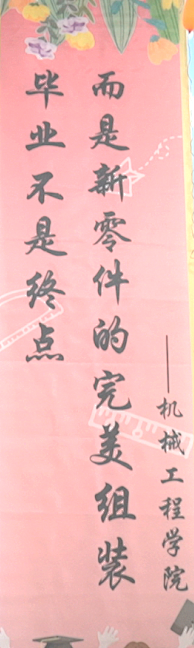 毕业不是终点
而是新零件的完美组装
——机械工程学院